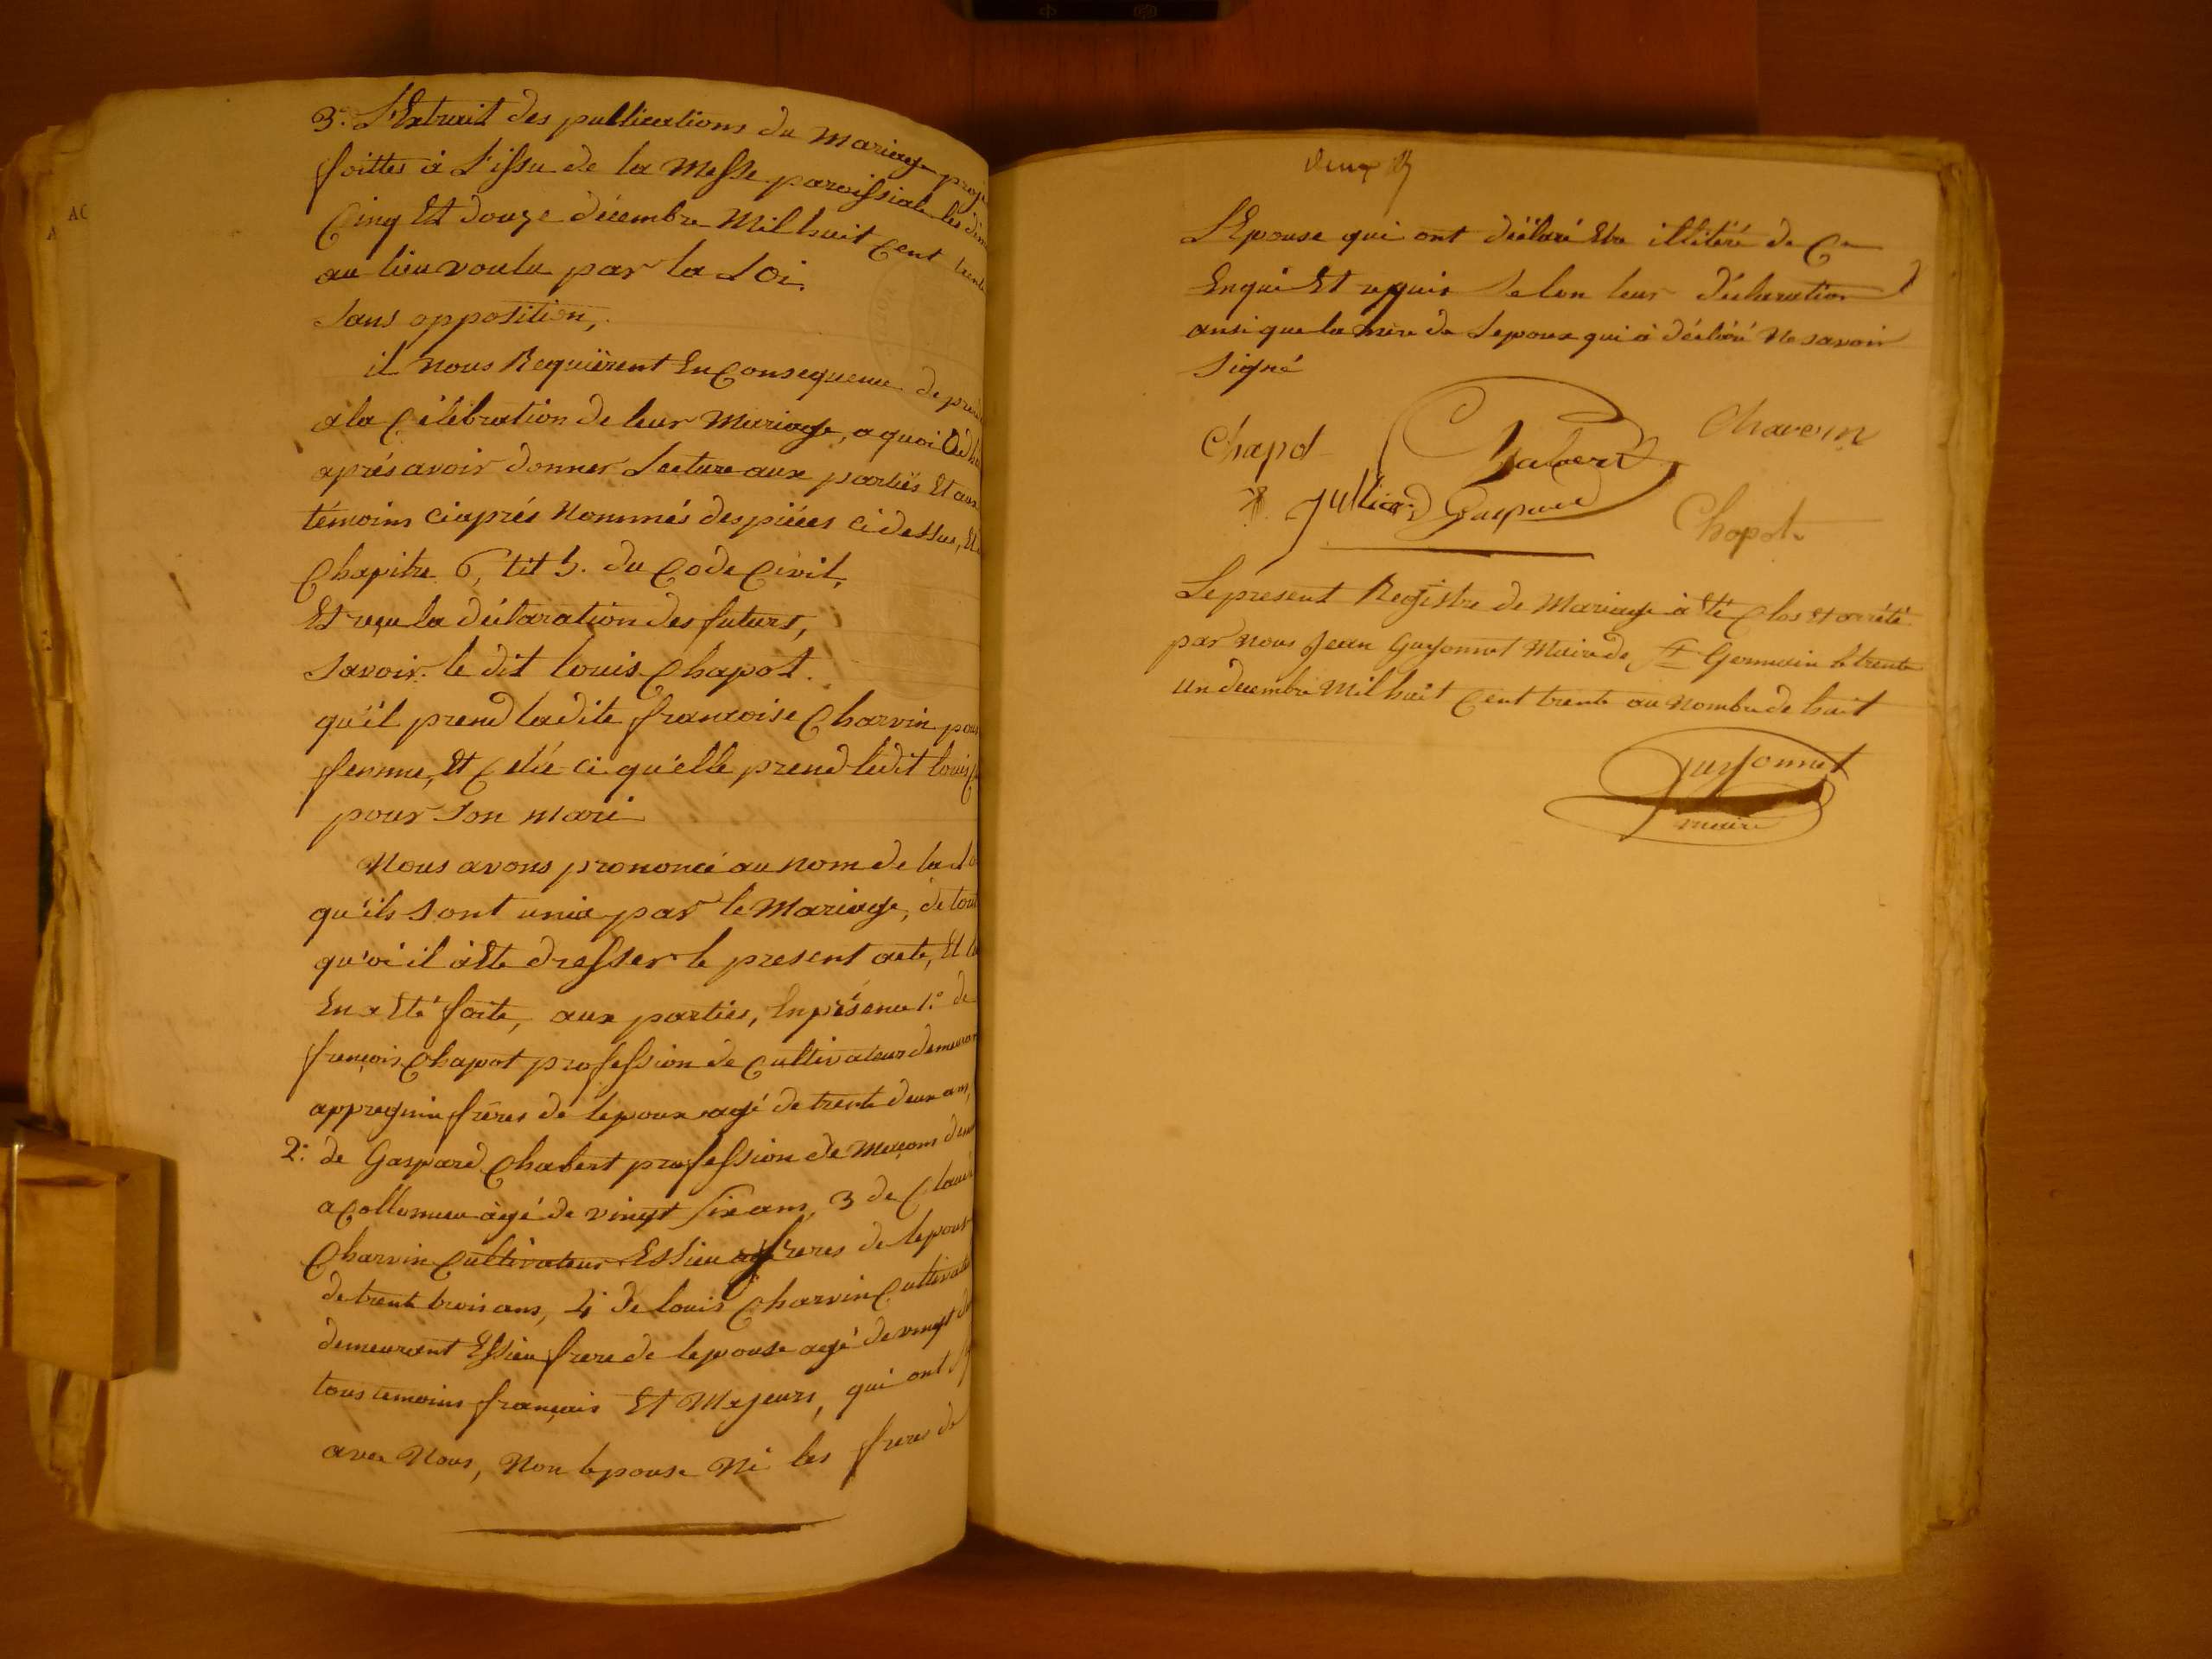 3.° L'Extrait des publications du Mariage proje
faittes à L'issu de la Messe paroissiale les dim
Cinq Et douze décembre Mil huit Cent trente
au lieu voulu par la Loi.
Sans opposition,
il nous Requièrent En Consequence de pro
a la Célébration de leur Mariage, a quoi
aprés avoir donner Lecture aux partiës Et aux
témoins ciaprés Nommés des pièces ci dessus, Et
Chapitre 6, tit 5. du Code Civil,
Et reçu la déclaration des futurs,
Savoir le dit Louis Chapot.
qu'il prend ladite francoise Charvin pour
femme, Et Celle-ci qu'elle prend ledit louis
pour Son mari
Nous avons prononcé au nom de la Lo
qu'ils sont unis par le Mariage, de tout
qu'oi il à Ete dresser le present acte, Et
En a Eté faite, aux parties, En présence 1.° de
françois Chapot profession de Cultivateur demeurant
appregnin frères de lepoux agé de trente deux ans,
2.° de Gaspard Chabert profession de Maçons dem
a Collonieu àgé de vingt six ans, 3 de Claude
Charvin Cultivateur Essieu freres de lepous
de trente trois ans, 4.° de louis Charvin Cultivate
demeurant Essieu frere de lepouse agé de vingt
tous temoins français Et Majeurs, qui ont
avec Nous, Non lepouse Ni les freres de
L'Epouse qui ont déclaré Etre illitéré de Ce
Enquis Et requis Selon leur déclaration
ansi que la mère de Lepoux qui à déclaré Ne savoir
Signé
Chapot
Chabert
Charvin
Julliard Gaspard
Chapot
Le present Registre de Mariage à Eté Clos Et arrété
par nous Jean Guyonnet Maire de St Germain le trente
un decembre Mil huit Cent trente au Nombre de huit
Guyonnet
maire